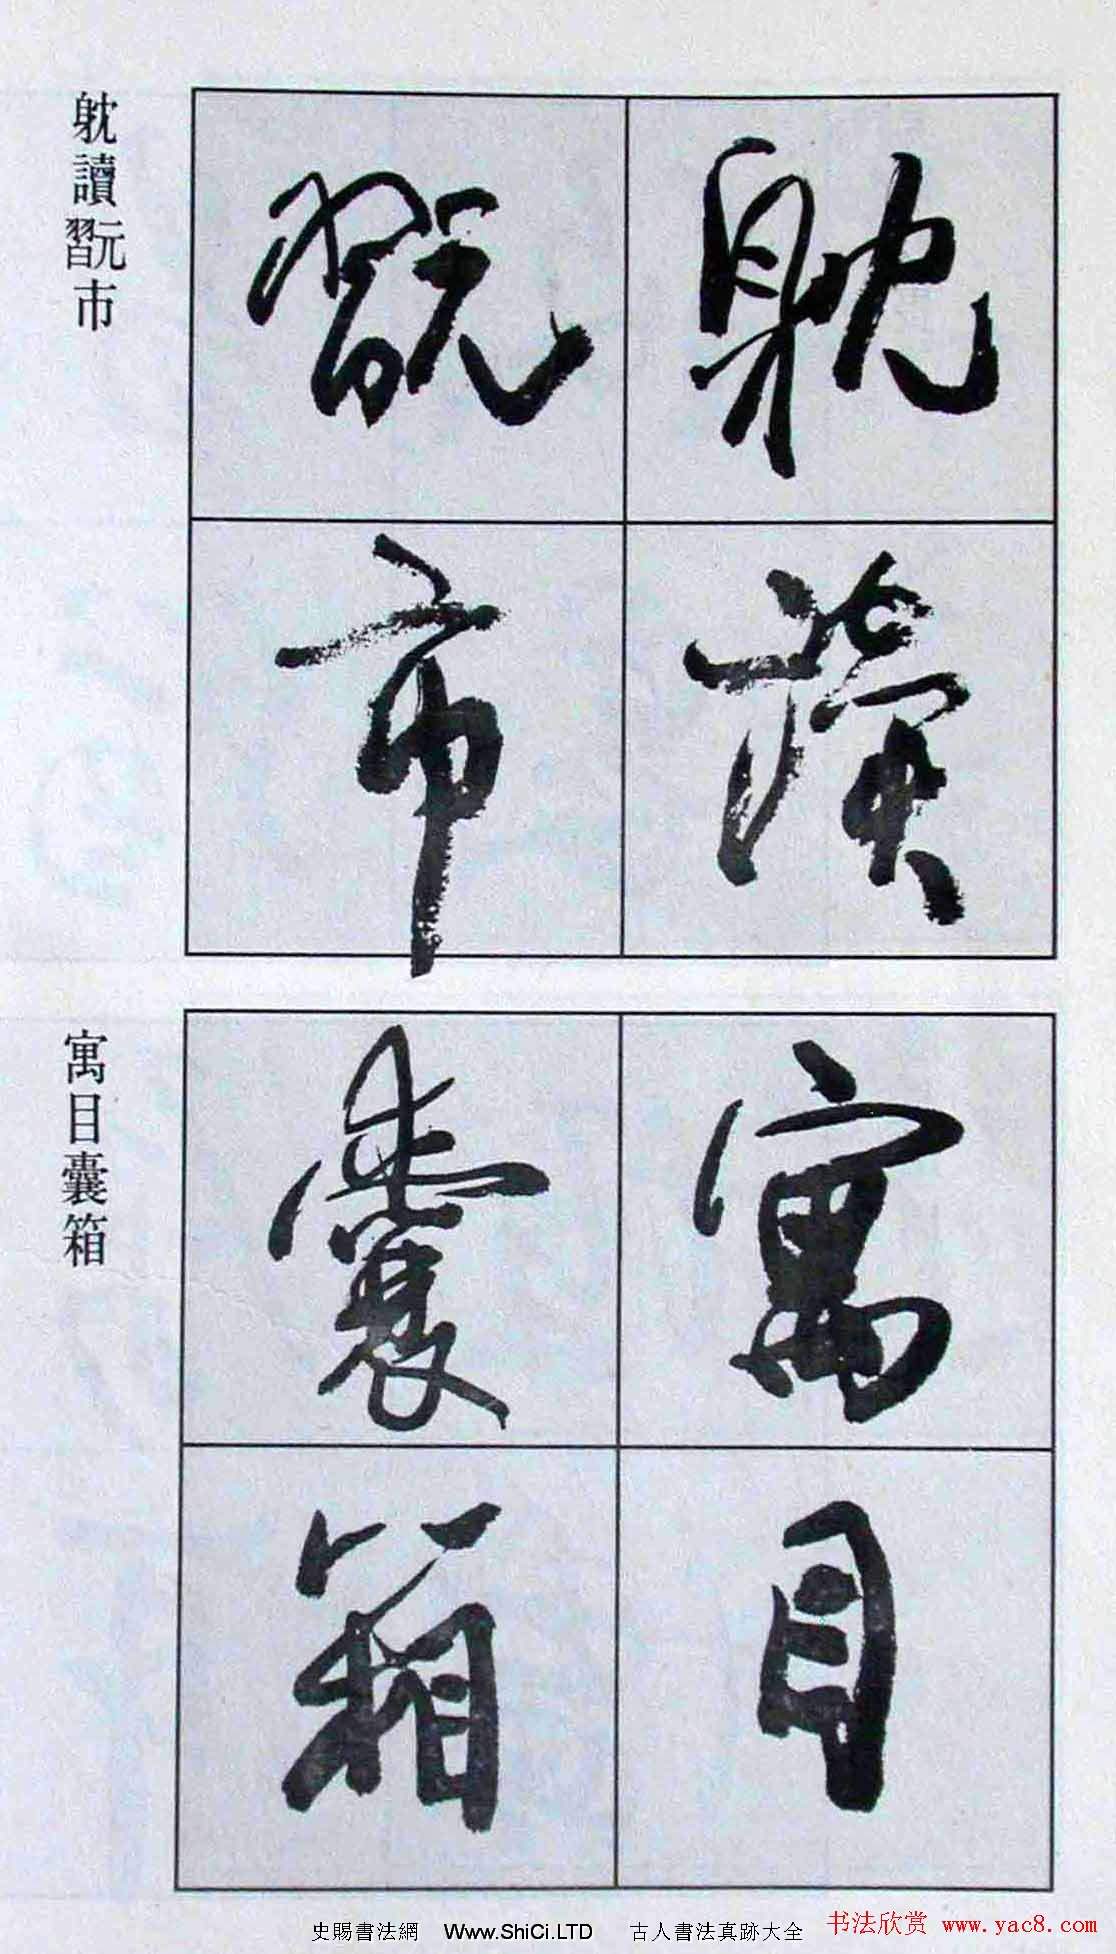 躭讀
翫市
躭讀翫市
寓目
囊箱
寓目囊箱
史賜書法網 Www.ShiCi.LTD 古人書法真跡大全
书法欣赏 www.yac8.com